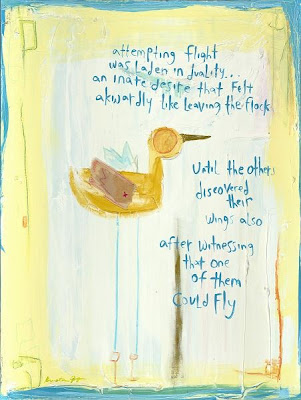 attempting flight
was laden in duality...
an inate desire that felt
akwardly like leaving the flock
Until the others
discovered
their
wings also
after witnessing
that one
of them
could fly